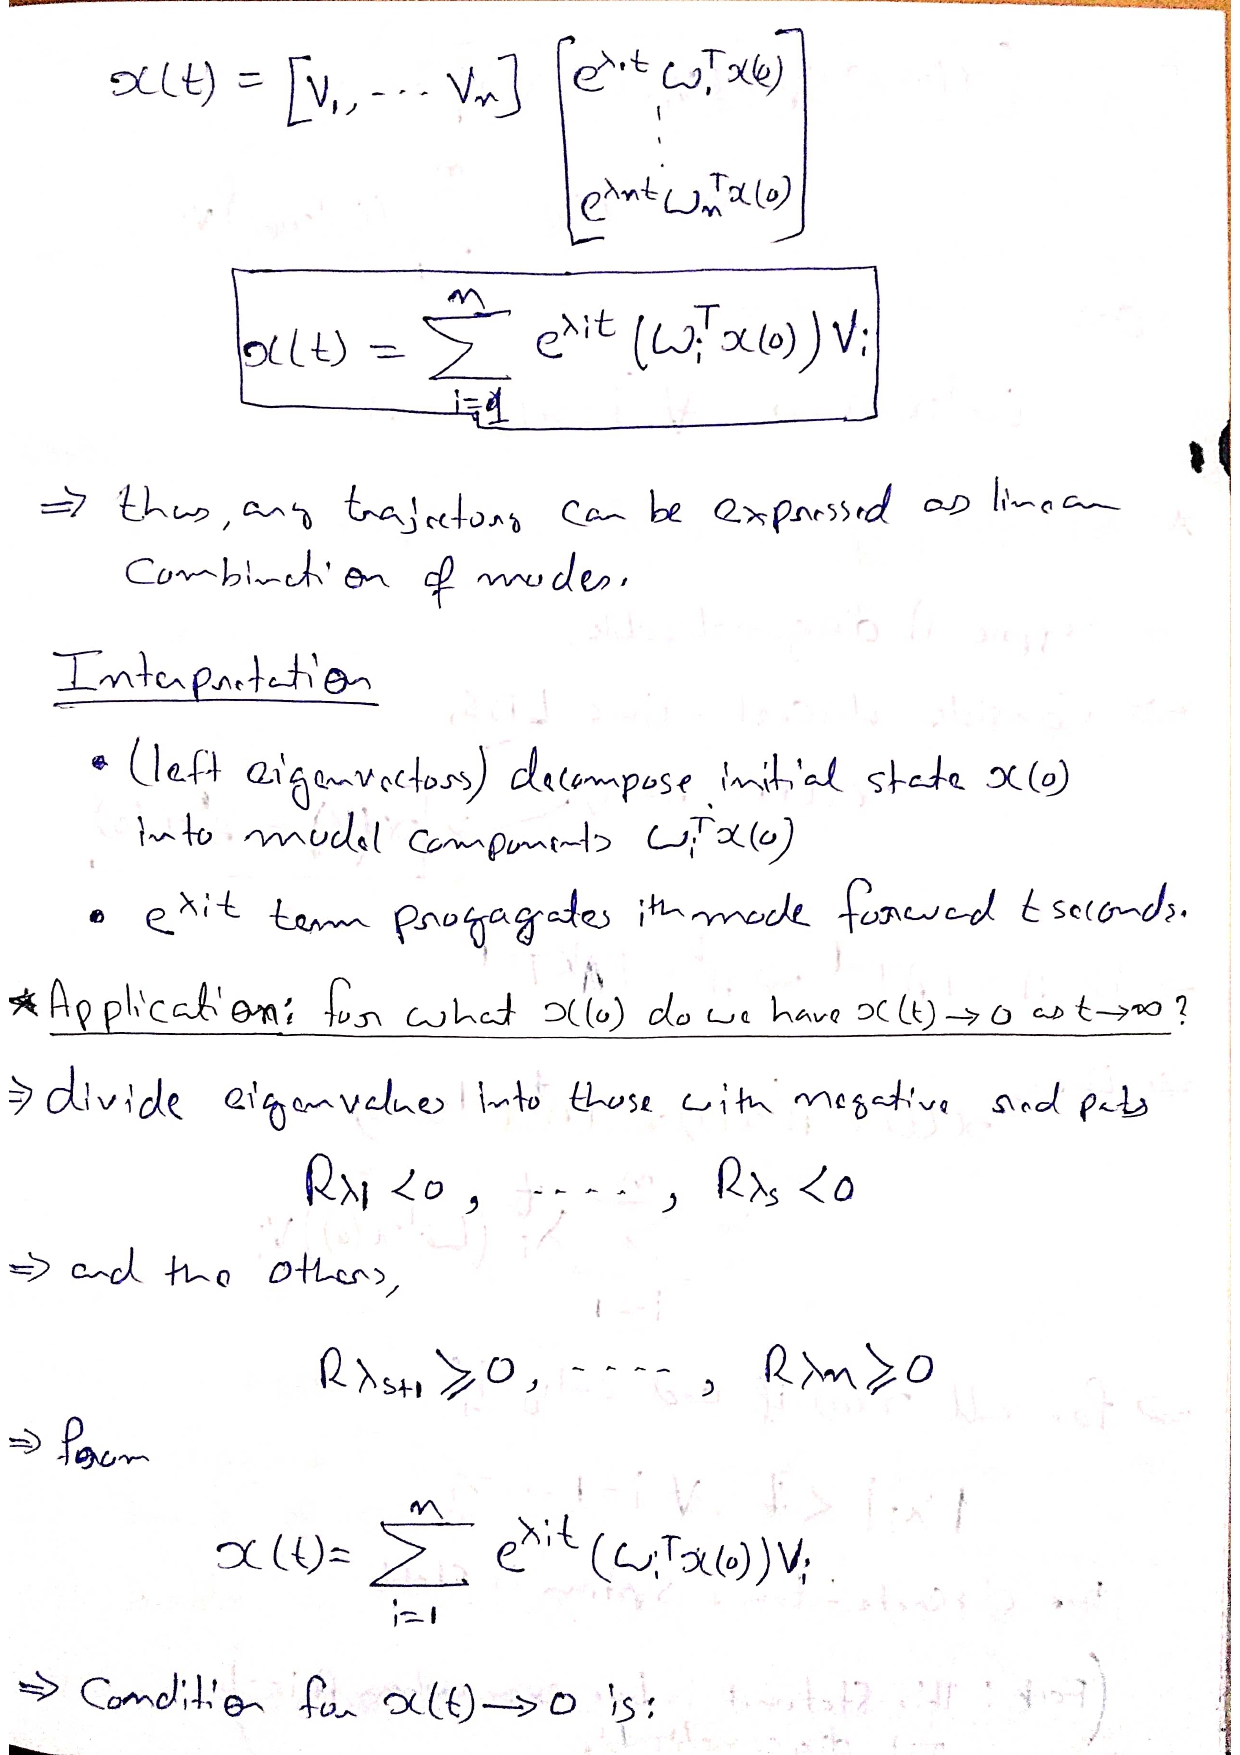 x(t) = [V₁, ---- Vₙ] [e^{λ₁t} ω₁ᵀx(0)
⋮
e^{λₙt} ωₙᵀx(0)]
x(t) = Σ_{i=1}^{n} e^{λᵢt} (ωᵢᵀx(0)) Vᵢ
⇒ thus, any trajectory can be expressed as linear
Combination of modes.
Interpretation
• (left eigenvectors) decompose initial state x(0)
into modal components ωᵢᵀx(0)
• e^{λᵢt} term progagates ith mode forward t seconds.
* Application: for what x(0) do we have x(t)→0 as t→∞?
⇒ divide eigenvalues into those with negative real parts
Rλ₁ <0, -----, Rλs <0
⇒ and the others,
Rλ_{s+1} ⩾0, ----, Rλn ⩾0
⇒ from
x(t)= Σ_{i=1}^{n} e^{λᵢt} (ωᵢᵀx(0)) Vᵢ
⇒ Condition for x(t)→0 is: